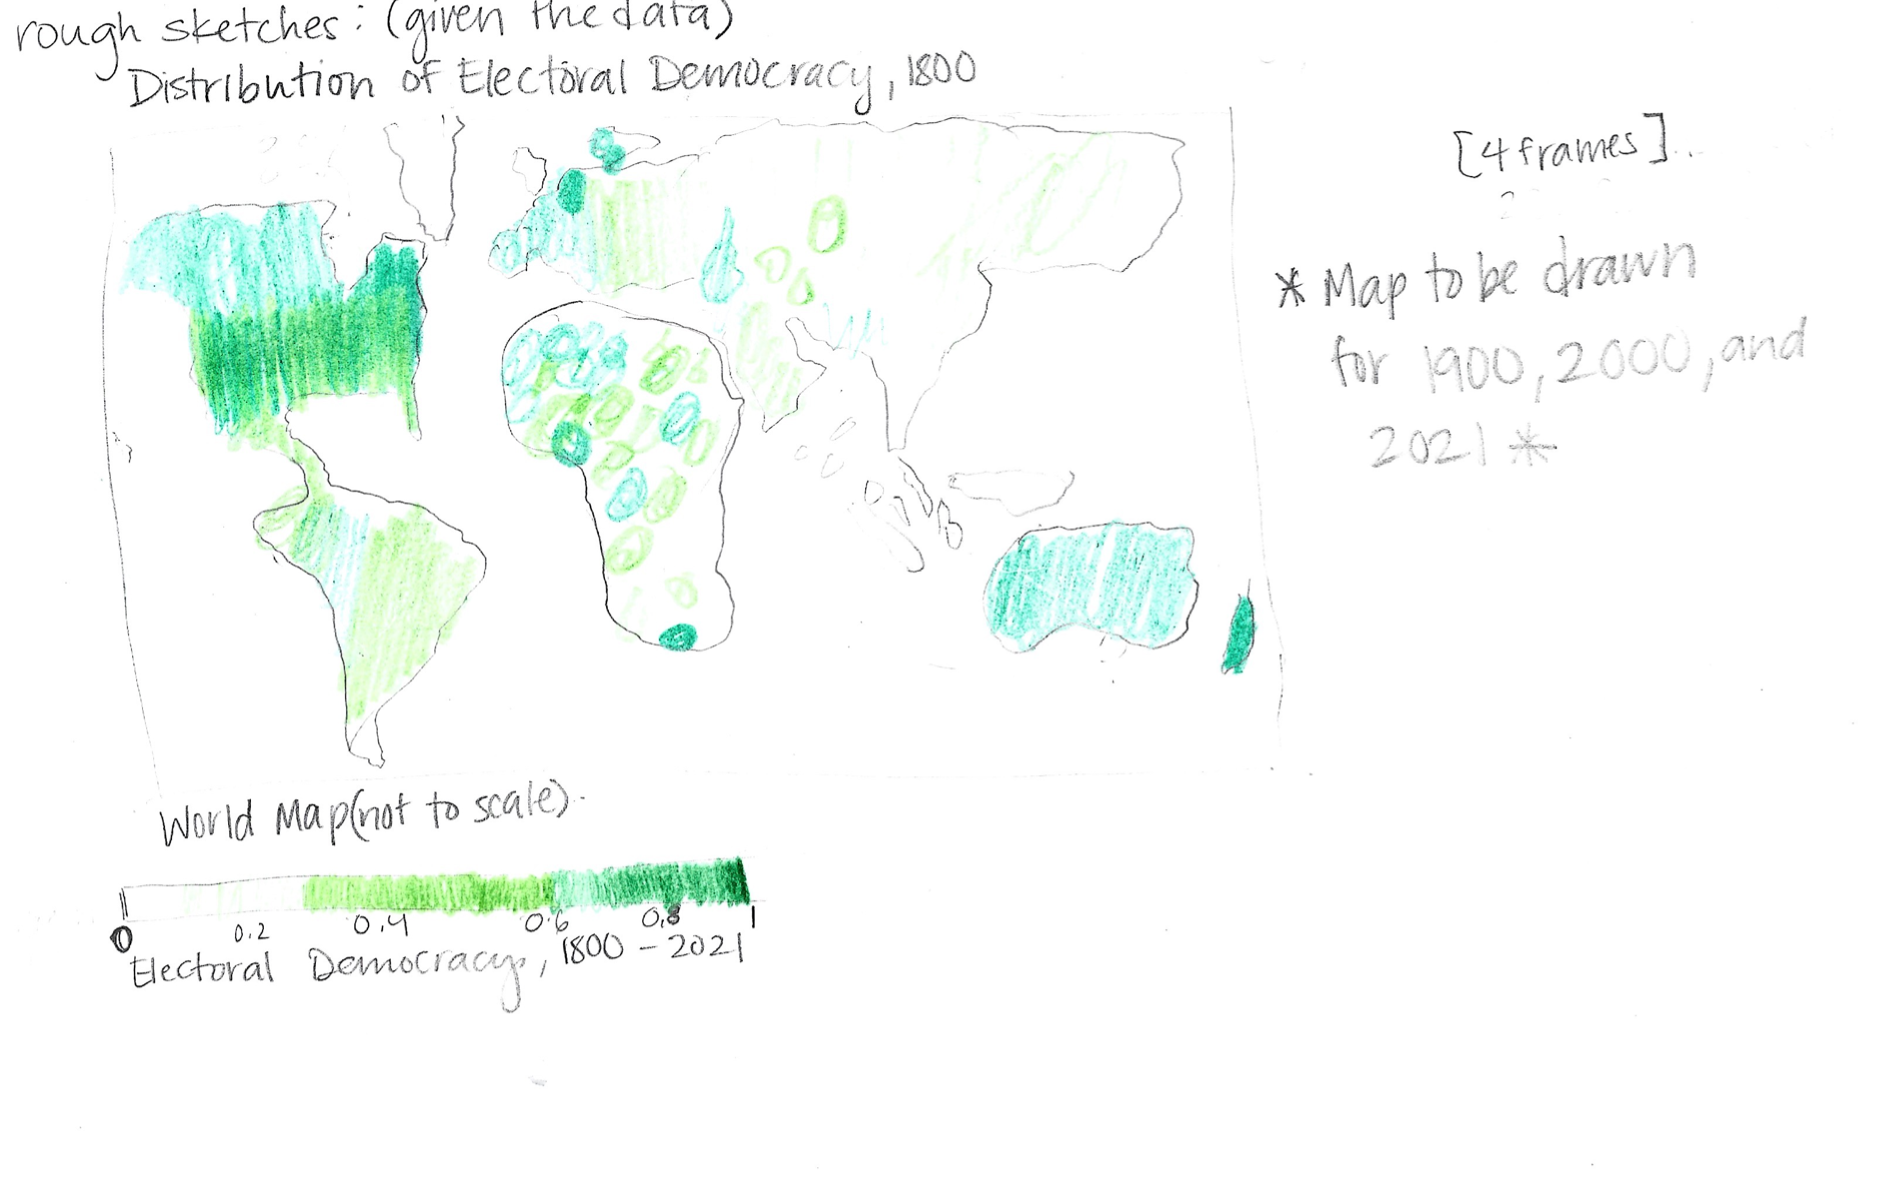 rough sketches: (given the data)
Distribution of Electoral Democracy, 1800
[4 frames].
* Map to be drawn
for 1900, 2000, and
2021 *
World Map (not to scale).
0 0.2 0.4 0.6 0.8 1
Electoral Democracy, 1800 - 2021